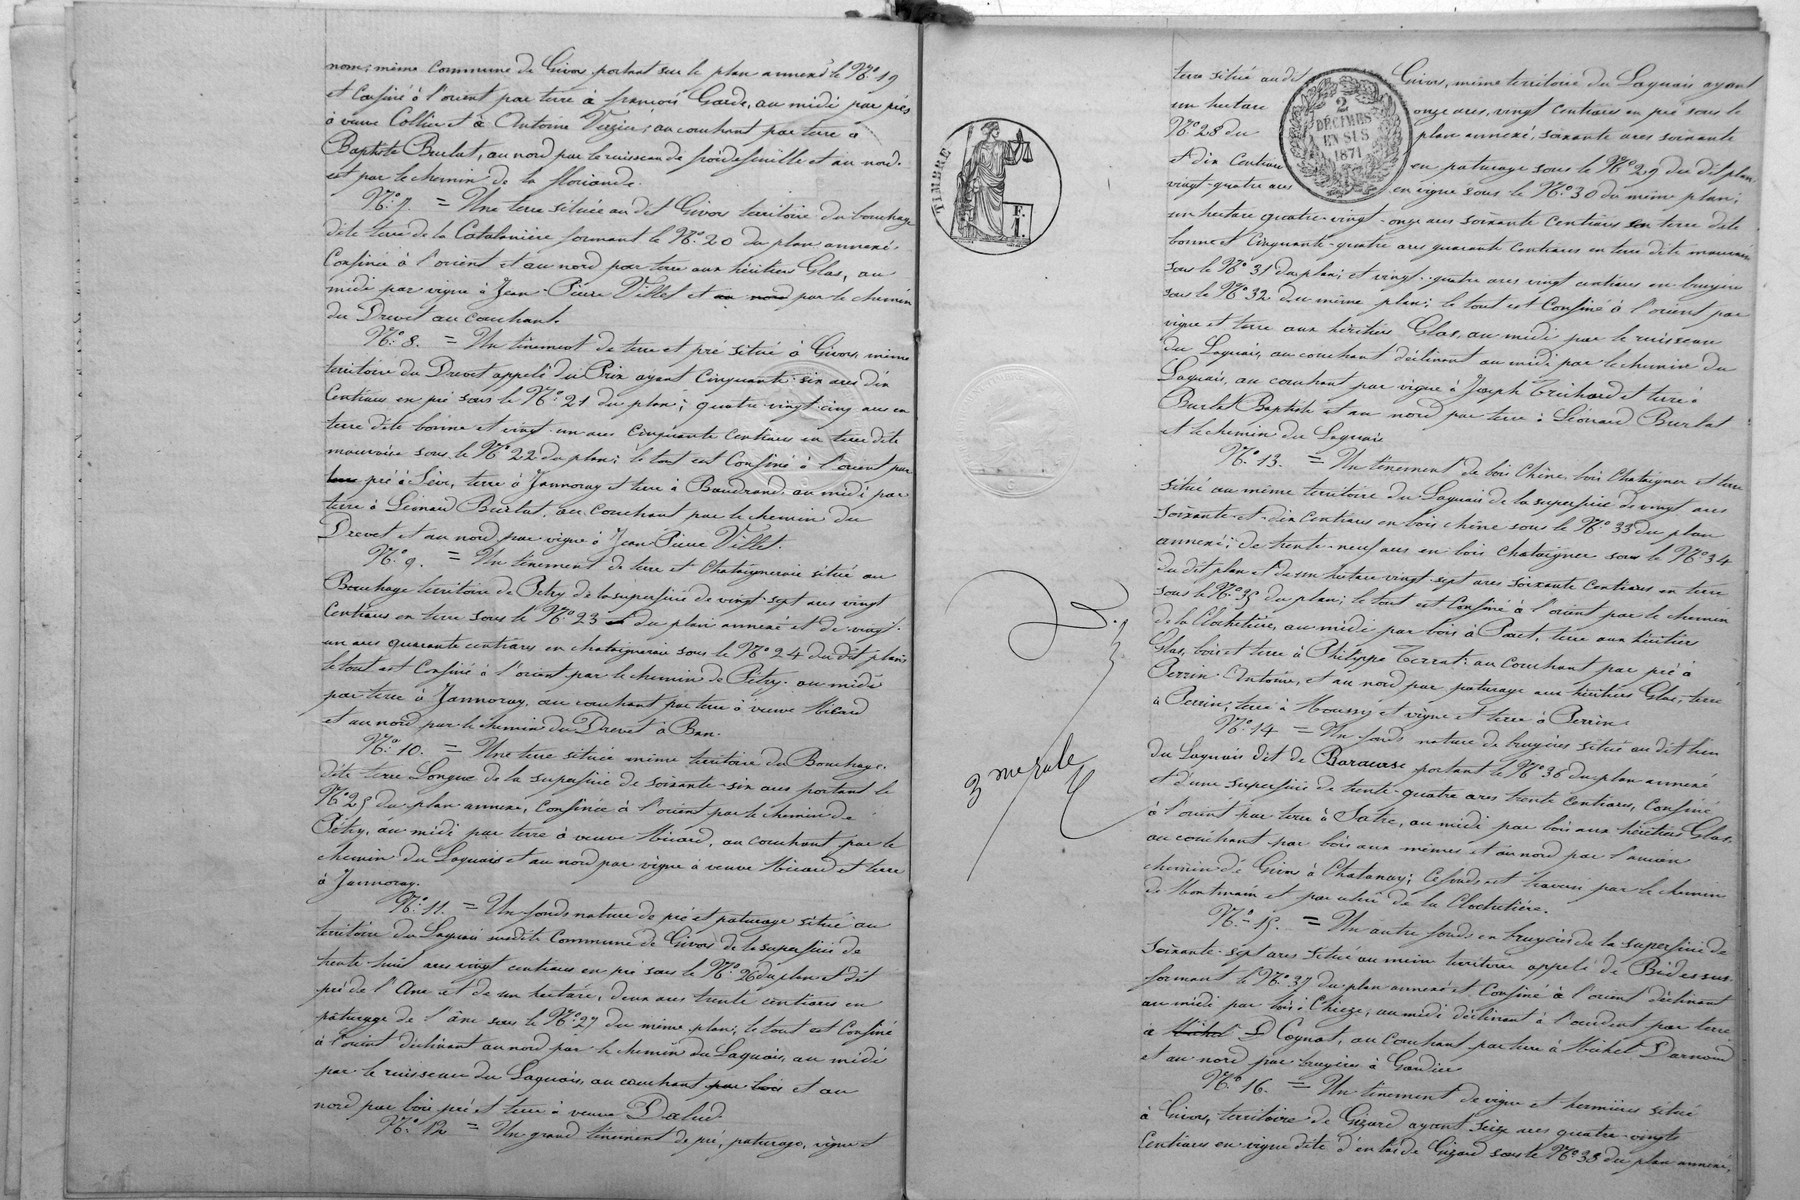 nom; même commune de Givors portant sur le plan annexé le N.º 19
et confiné à l'orient par terre à françois Garde, au midi par prés
à veuve Collier et à Antoine Verzier, au couchant par terre à
Baptiste Burlat, au nord par le ruisseau de froidefeuille et au nord-
est par le chemin de la floriande.
N.º 7. = Une terre située au dit Givors territoire du bouchage
dite terre de la Catalanière formant le N.º 20 du plan annexé.
Confinée à l'orient et au nord par terre aux héritiers Glas, au
midi par vigne à Jean Pierre Villet et au nord par le chemin
du Drevet au couchant.
N.º 8. = Un tènement de terre et pré situé à Givors, même
territoire du Drevet appelé du Prix ayant cinquante-six ares dix
Centiares en pré sous le N.º 21 du plan; quatre-vingt-cinq ares en
terre dite bonne et vingt-un ares cinquante centiares en terre dite
mauvaise sous le N.º 22 du plan; le tout est confiné à l'orient par
terre pré à Sève, terre à Jannoray et terre à Baudrand au midi par
terre à Léonard Burlat, au couchant par le chemin du
Drevet et au nord par vigne à Jean Pierre Villet.
N.º 9. = Un tènement de terre et chataigneraie situé au
Bouchage territoire de Pétry de la superficie de vingt-sept ares vingt
Centiares en terre sous le N.º 23 du plan annexé et de vingt-
un ares quarante centiares en chataigneraie sous le N.º 24 du dit plan
le tout est confiné à l'orient par le chemin de Pétry. au midi
par terre à Jannoray, au couchant par terre à veuve Micard
et au nord par le chemin du Drevet à Ban.
N.º 10. = Une terre située même territoire du Bouchage.
dite terre Longue de la superficie de soixante-six ares portant le
N.º 25 du plan annexé, confinée à l'orient par le chemin de
Pétry, au midi par terre à veuve Micard, au couchant par le
chemin du Laquais et au nord par vigne à veuve Micard et terre
à Jannoray.
N.º 11. = Un fonds nature de pré et paturage situé au
territoire du Laquais susdite Commune de Givors de la superficie de
trente-huit ares vingt centiares en pré sous le N.º 26 du plan et dit
pré de l'Ane et de un hectare, deux ares trente centiares en
paturage de l'âne sous le N.º 27 du même plan; le tout est confiné
à l'orient déclinant au nord par le chemin du Laquais, au midi
par le ruisseau du Laquais, au couchant par bois et au
nord par bois pré et terre à veuve Dalud.
N.º 12 = Un grand tènement de pré, paturage, vigne et
TIMBRE
F.
I.
3 me role
2
DÉCIMES
EN SUS
1871
terre situé au dit Givors, même territoire du Laquais ayant
un hectare onze ares, vingt centiares en pré sous le
N.º 28 du plan annexé, soixante ares soixante
et dix centiares en paturage sous le N.º 29 du dit plan
vingt-quatre ares en vigne sous le N.º 30 du même plan;
un hectare quatre-vingt-onze ares soixante centiares en terre dite
bonne et cinquante-quatre ares quarante centiares en terre dite mauvaise
sous le N.º 31 du plan; et vingt-quatre ares vingt centiares en bruyère
sous le N.º 32 du même plan; le tout est confiné à l'orient par
vigne et terre aux héritiers Glas, au midi par le ruisseau
du Laquais, au couchant déclinant au midi par le chemin du
Laquais, au couchant par vigne à Joseph Trichard et terre à
Burlat Baptiste et au nord par terre à Léonard Burlat
et le chemin du Laquais
N.º 13. = Un tènement de bois chêne, bois chataigner et terre
situé au même territoire du Laquais de la superficie de vingt ares
soixante-et-dix centiares en bois chêne sous le N.º 33 du plan
annexé; de trente-neuf ares en bois chataigner sous le N.º 34
du dit plan et de un hectare vingt-sept ares soixante centiares en terre
sous le N.º 35 du plan; le tout est confiné à l'orient par le chemin
de la Clochetière, au midi par bois à Pact, terre aux héritiers
Glas, bois et terre à Philippe Terrat. au couchant par pré à
Perrin Antoine, et au nord par paturage aux héritiers Glas, terre
à Perrin, terre à Moussy et vigne et terre à Perrin.
N.º 14 = Un fonds nature de bruyères situé au dit lieu
du Laquais dit de Baraause portant le N.º 36 du plan annexé
et d'une superficie de trente-quatre ares trente centiares, confiné
à l'orient par terre à Satre, au midi par bois aux héritiers Glas,
au couchant par bois aux mêmes et au nord par l'ancien
chemin de Givors à Chatanay; Ce fonds est traversé par le chemin
de Montmain et par celui de la Clochetière.
N.º 15. = Un autre fonds en bruyères de la superficie de
soixante-sept ares situé au même territoire appelé de Bédessus
formant le N.º 37 du plan annexé et confiné à l'orient déclinant
au midi par bois à Chièze, au midi déclinant à l'occident par terre
à Michel D Cognat, au couchant par terre à Michel Darnoud
et au nord par bruyères à Gaudier
N.º 16. = Un tènement de vigne et hermières situé
à Givors, territoire de Gizard ayant seize ares quatre-vingts
Centiares en vigne dite d'en bas de Gizard sous le N.º 38 du plan annexé,